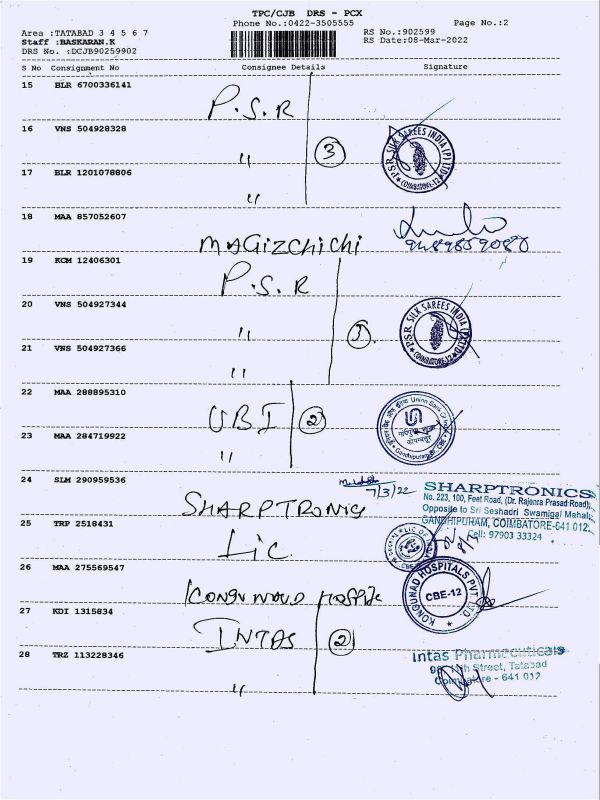 TPC/CJB DRS - PCX
Phone No.:0422-3505555
Page No.:2
Area :TATABAD 3 4 5 6 7
RS No.:902599
Staff :BASKARAN.K
RS Date:08-Mar-2022
DRS No. :DCJB90259902
S No Consignment No Consignee Details Signature
15 BLR 6700336141
P.S.R
16 VNS 504928328
"
3
PSR SILK SAREES INDIA (P) LTD
COIMBATORE-12
17 BLR 1201078806
"
18 MAA 857052607
MAGIZCHICHI
9489859080
19 KCM 12406301
P.S.R
20 VNS 504927344
"
3
PSR SILK SAREES INDIA (P) LTD
COIMBATORE-12
21 VNS 504927366
"
22 MAA 288895310
UBI
2
Union Bank
23 MAA 284719922
"
24 SLM 290959536
SHARPTRONICS
7/3/22
SHARPTRONICS
No. 223, 100, Feet Road, (Dr. Rajenra Prasad Road),
Opposite to Sri Seshadri Swamigal Mahal,
GANDHIPURAM, COIMBATORE-641 012.
Cell: 97903 33324
25 TRP 2518431
LIC
26 MAA 275569547
KONGUNAD HOSPITAL
KONGUNAD HOSPITALS PVT LTD
CBE-12
27 KDI 1315834
INTAS
2
28 TRZ 113228346
"
Intas Pharmaceuticals
11th Street, Tatabad
Coimbatore - 641 012